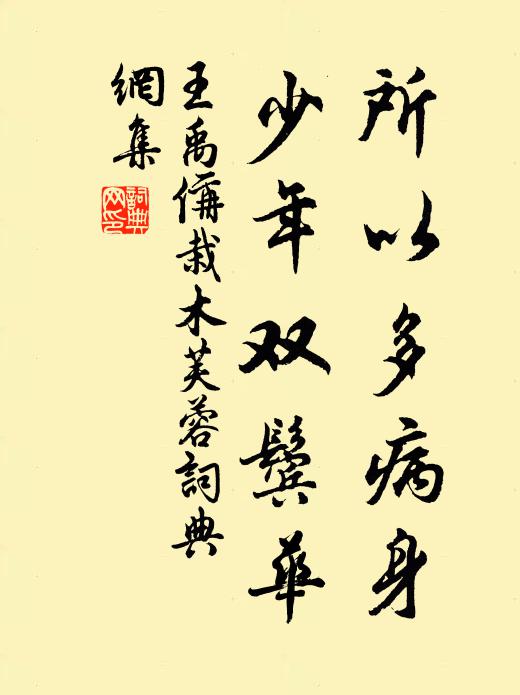 所以多病身
少年双鬓华
王禹偁栽木芙蓉詞典
網集
詞典
网印